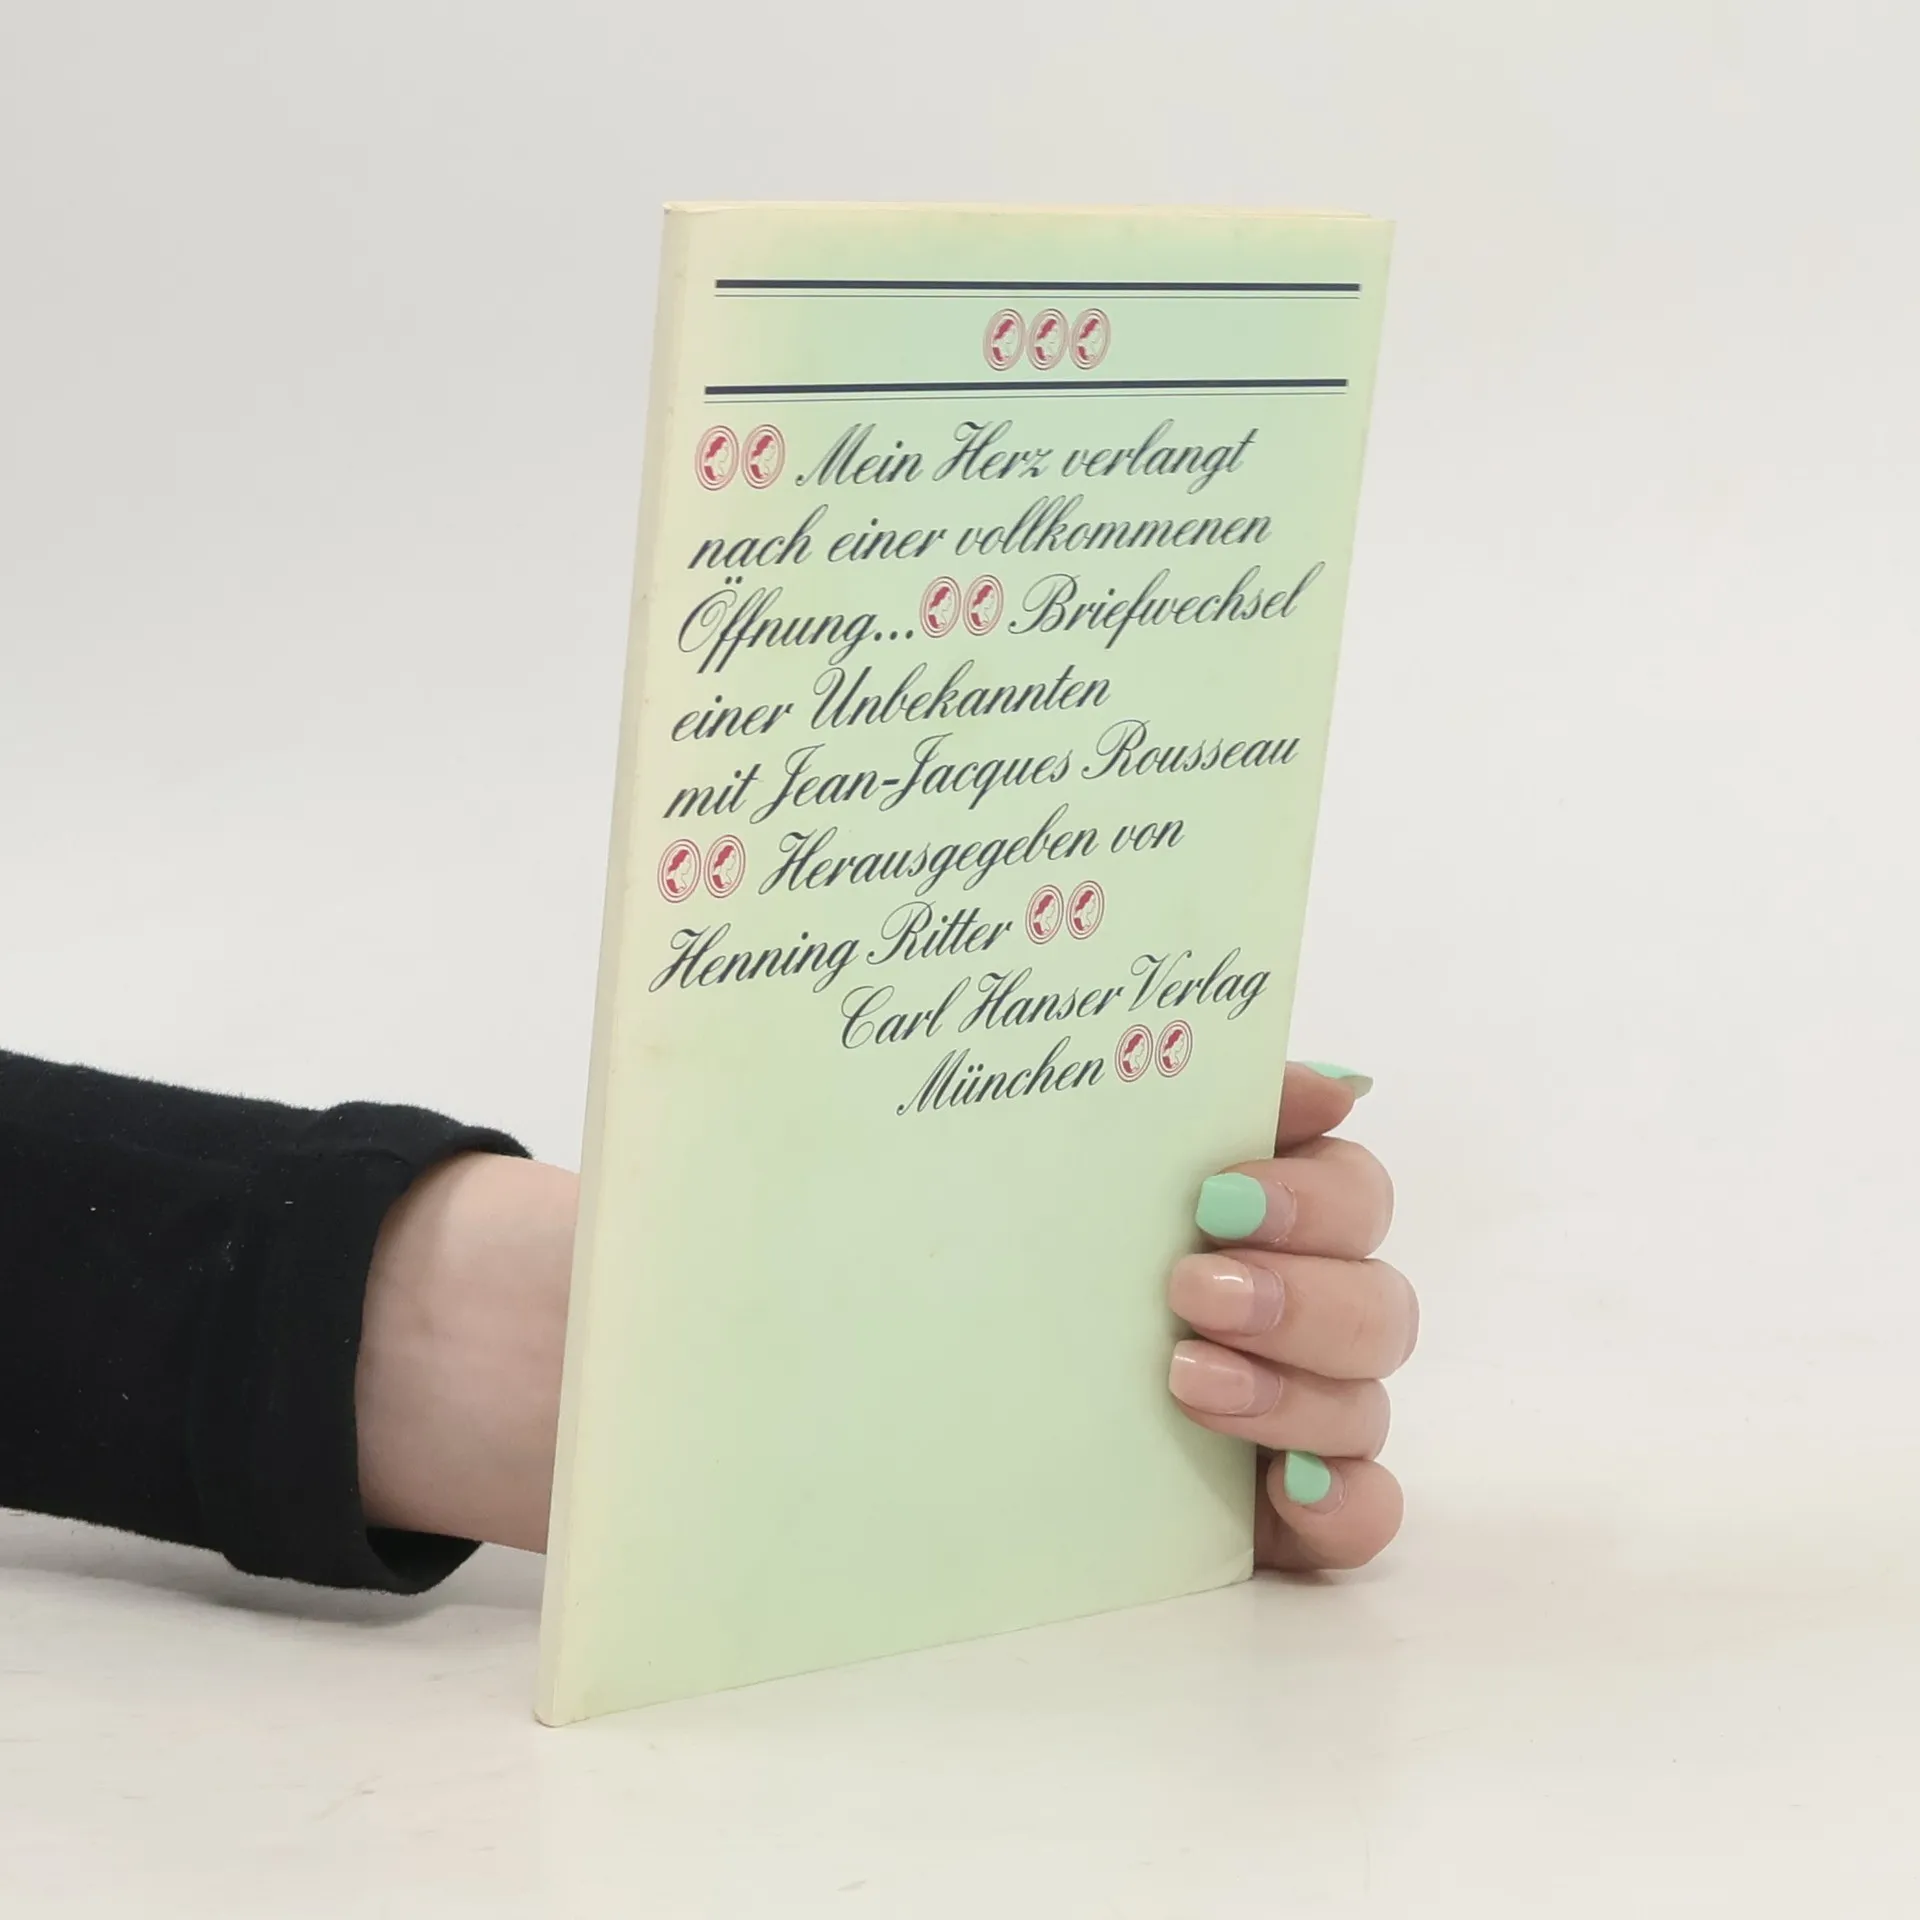 Mein Herz verlangt
nach einer vollkommenen
Öffnung... Briefwechsel
einer Unbekannten
mit Jean-Jacques Rousseau
Herausgegeben von
Henning Ritter
Carl Hanser Verlag
München